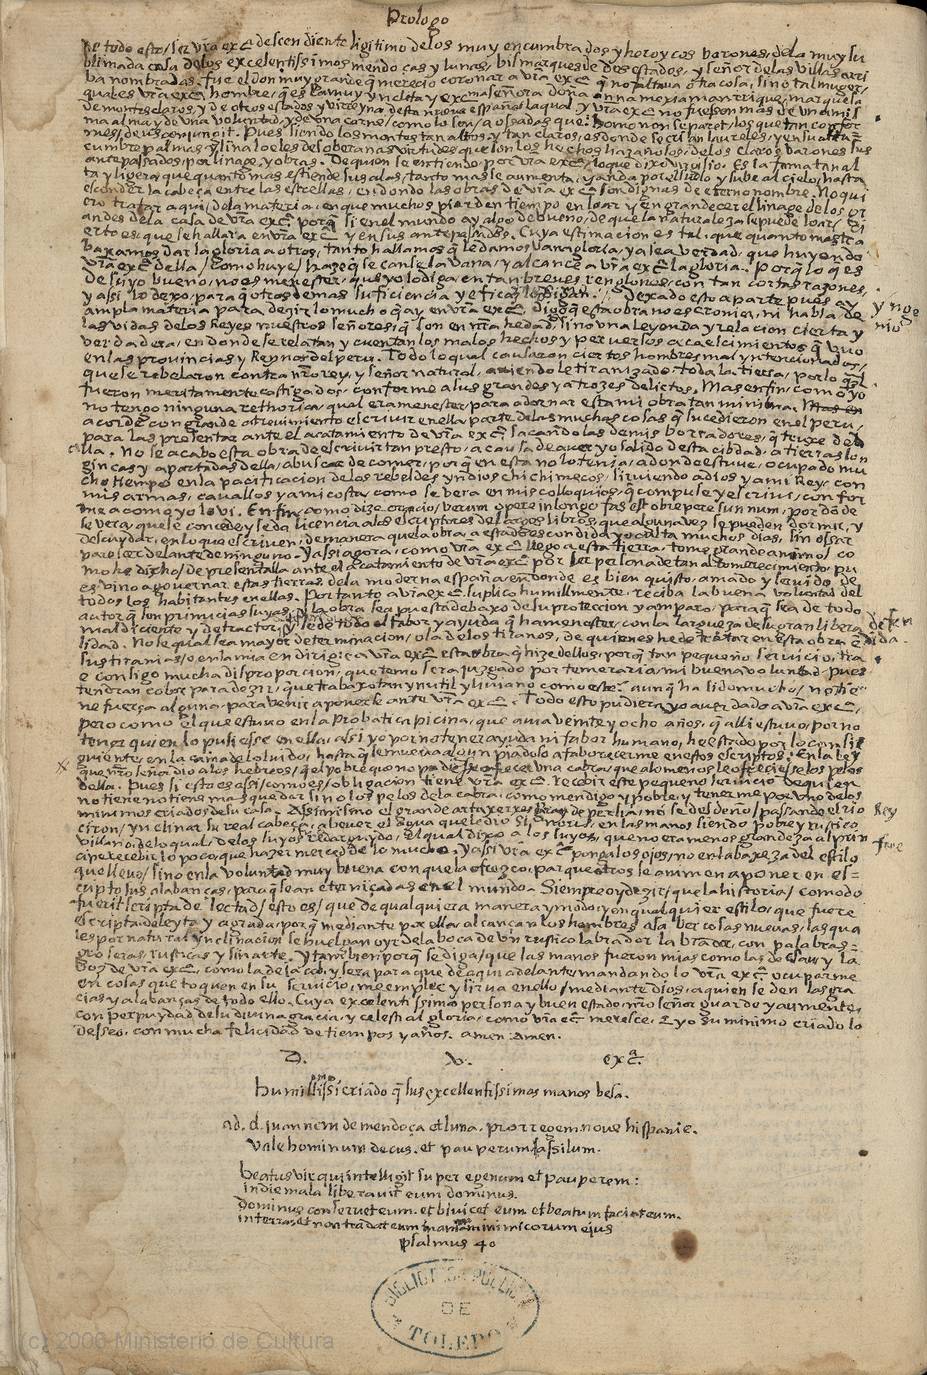 Prologo
de todo esto / ser vr̃a exçª descendiente ligitimo delos muy encumbrados y heroycos barones, dela muy su
blimada casa delos excelentissimos mendoças y lunas, marques de dos estados, y señor delas villas
ba nombradas. fue el don muy grande q̃ mereçio coronar a vr̃a exçª q̃ no faltaua otra cosa, sino tal muger,
qual es vr̃a exçª hombre, q̃ es la muy ynclita y exçma señora doña anna mexia manrrique, marquesa
de montesclaros, y de otros estados y virreyna desta nueua españa la qual y vr̃a exçª no fuessen mas de un a
ma alma y de una voluntad, y de una carne, como lo son, a osadas que: homo non separet, los que tan confor
mes, deus conjunxit. Pues siendo los montes tan altos, y tan claros, es donde se crian laureles, y en su alta
cumbre palmas y lina loeles de soberanas virtudes que son los hechos hazañosos, delos claros barones sus
antepassados, por linage, y obras. De quien se entiende por vr̃a exçª, lo que dixo virgilio. Es la fama tan al
ta y ligera que quanto mas estiende sus alas, tanto mas se aumenta, y anda por el suelo y sube al cielo, hasta
esconder la cabeça entre las estrellas, en donde las obras de vr̃a exçª son dignas de eterno nombre. No qui
ero tratar aqui, dela materia, en que muchos pierden tiempo en loar y en grandecer el linage delos gr
andes dela casa de vr̃a exçª, porq̃ si en el mundo ay algo de bueno, de que la naturaleza se puede loar, ci
erto es, que se hallara en vr̃a exçª y en sus antepassados. Cuya estimacion es tal, que quanto mas tra
baxamos dar la gloria a otros, tanto hallamos q̃ le damos vana gloria, y a la verdad, que huyendo
vr̃a exçª della / como huye / haze q̃ se canse la vana, y alcance a vr̃a exçª la gloria. Porq̃ lo q̃ es
de suyo bueno, no es menester, que yo lo diga, en tan breues renglones, con tan cortas razones,
y assi lo dexo, para q̃ otros de mas suficiencia y eficacia lo digan. Dexado esto aparte pues ay
ampla materia para dezir lo mucho q̃ ay en vr̃a exçª, digo q̃ esta obra no es cronica, ni habla de
las vidas delos Reyes nuestros señores, q̃ son en nr̃a hedad, sino una leyenda y relacion cierta y
verdadera, en donde se relatan y cuentan los malos hechos y peruersos acaescimientos q̃ vuo
en las prouincias y Reynos del peru. Todo lo qual causaron ciertos hombres mal yntencionados,
que se rebelaron contra nr̃o rey, y señor natural, auiendole tiranizado toda la tierra, por lo qual
fueron meritamente castigados, conforme a sus grandes y atrozes delictos. Mas en fin, como yo
no tengo ninguna rethorica, qual era menester, para adornar esta mi obra tan minima.
acorde con grande atreuimiento escriuir en ella parte de las muchas cosas q̃ sucedieron en el peru,
para las presentar ante el acatamiento de vr̃a exçª sacandolas de mis borradores, q̃ truxe de a
lla. No se acabo esta obra de escriuir tan presto, a causa de auer yo salido desta cibdad, a tierras lon
gincas y apartadas della, a buscar de comer, porq̃ en esta no lo tenia, a donde estuue, ocupado mu
cho tiempo en la pacificacion delos rebeldes yndios chichimecos, siruiendo a dios y a mi Rey, con
mis armas, cauallos y a mi costa, como se vera en mis colloquios, q̃ compuse y escriui, confor
me a como yo lo vi. En fin, como dize oracio, verum opere in longo fas est obrepere sunnum, por donde
se vera, que se concede, y se da licencia alos escriptores de largos libros, que alguna vez se pueden dormir, y
descuydar, en lo que escriuen, de manera que la obra, a estado escondida y oculta muchos dias, sin ossar
parescer delante de ninguno. Y assi agora, como vr̃a exçª llego a esta tierra, tome grande animo / co
mo he dicho / de presentalla ante el acatamiento de vr̃a exçª por ser persona de tan alto merecimiento, pu
es vino a gouernar estas tierras dela moderna españa, en donde es bien quisto, amado y seruido, de
todos los habitantes en ellas. Por tanto a vr̃a exçª. suplico humillmente, reciba la buena voluntad del
autor q̃ son primicias suyas, y la obra sea puesta debaxo de su proteccion y amparo, para q̃ sea de todo
maldiciente y detractor, y se de todo el fabor y ayuda q̃ ha menester, con la largueza de su gran libera
lidad. No se qual sea mayor determinacion, o la delos tiranos, de quienes he de tratar en esta obra q̃
sus tiranias / o en la mia en dirigir a vr̃a exçª esta obra q̃ hize dellos, porq̃ tan pequeño seruicio, tra
e consigo mucha disproporcion, que temo sera juzgado por temeraria, mi buena voluntad. pues
tendran color para dezir, que trabaxo tan ynutil y liuiano como este, aunq̃ ha sido mucho, no tie
ne fuerça alguna, para venir a ponerse ante vr̃a exçª. Todo esto pudiera yo auer dado a vr̃a exçª,
pero como el que estuuo en la Probatica picina, que auia veinte y ocho años, q̃ alli estuuo, por no
tener quien lo pusiesse en ella, assi yo por no tener ayuda ni fabor humano, he estado por lo consi
guiente, en la cama del oluido, hasta q̃ se mueua algun piadoso a faborecerme en estos escriptos. En la ley
que nr̃o señor dio alos hebreos, q̃ el pobre que no pudiesse ofrecer una cabra, que alomenos le ofreciesse los pelos
della. Pues si esto es assi, como es, obligacion tiene vr̃a exçª recebir este pequeño seruicio, de quien
no tiene ni tiene mas que dar, sino los pelos dela cabra, como mendigo y pobre, y tenerme por uno delos
minimos criados de su casa. Assimismo el grande artaxerxes Rey de persia, no se desdeño / passando el rio
ciron / ynclinar su real cabeça, a beuer el agua que le dio sinetis, en las manos siendo pobre y rustico
villano, delo qual, delos suyos redarguydo, el qual dixo a los suyos, que no era menos grandeza al prin
apercebir lo poco, que hazer merced delo mucho. Y assi vr̃a exçª ponga los ojos, no en la baxeza del estilo
q̃ llevo, sino en la voluntad muy buena con que la ofrezco, para que otros se animen a poner en es=
cripto sus alabanças, para q̃ sean eternizadas en el mundo. Siempre oy dezir, que la historia / como do
fuerit scripta delectat / esto es / que de qualquiera manera y modo, y en qualquier estilo, que fuere
escripta deleyta y agrada, porq̃ mediante por ella, alcançan los hombres a saber cosas nueuas, las qua
les por natural ynclinacion se huelgan oyr dela boca de un rustico labrador la bran, con palabras=
groseras, rusticas y sin arte. Y tambien porq̃ se diga, que las manos fueron mias como las de esau, y la
boz de vr̃a exçª, como la de jacob, y sera para que de aqui adelante, mandando lo vr̃a exçª ocuparme
en cosas que toquen en su seruicio, me emplee y sirua en ello / mediante dios, a quien se den las gra
cias y alabanças de todo ello. Cuya excelentissima persona y buen estado nr̃o señor guarde y aumente,
con perpuydad de su divina gracia, y celestial gloria, como vr̃a exçª meresce, q̃ yo su minimo criado lo
desseo, con mucha felicidad de tiempos y años. amen amen.
D. V. exçª.
humillissi criado q̃ sus excellentissimas manos besa.
ad. d. juannem de mendoça et luna. prorregem. noue hispanie.
Vale hominum decus. et pauperum assilum.
beatus vir qui intelligit super egenum et pauperem:
in die mala liberauit eum dominus.
Dominus conseruet eum. et biuicet eum et beatum faciat eum.
in terra. et non tradat eum in animam inimicorum ejus
psalmus 40
BIBLIOTECA PUBLICA
DE
TOLEDO
(c) 2006 Ministerio de Cultura